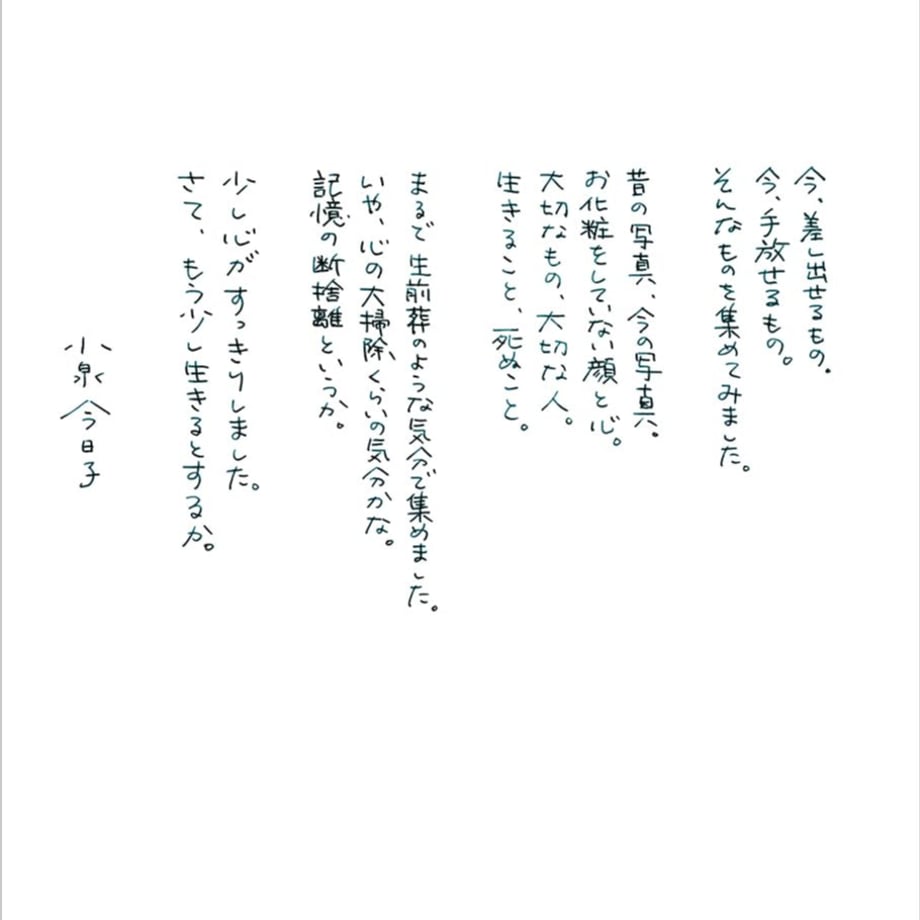 今、差し出せるもの。
今、手放せるもの。
そんなものを集めてみました。
昔の写真、今の写真。
お化粧をしていない顔と心。
大切なもの、大切な人。
生きること、死ぬこと。
まるで生前葬のような気分で集めました。
いや、心の大掃除くらいの気分かな。
記憶の断捨離というか。
少し心がすっきりしました。
さて、もう少し生きるとするか。
小泉今日子